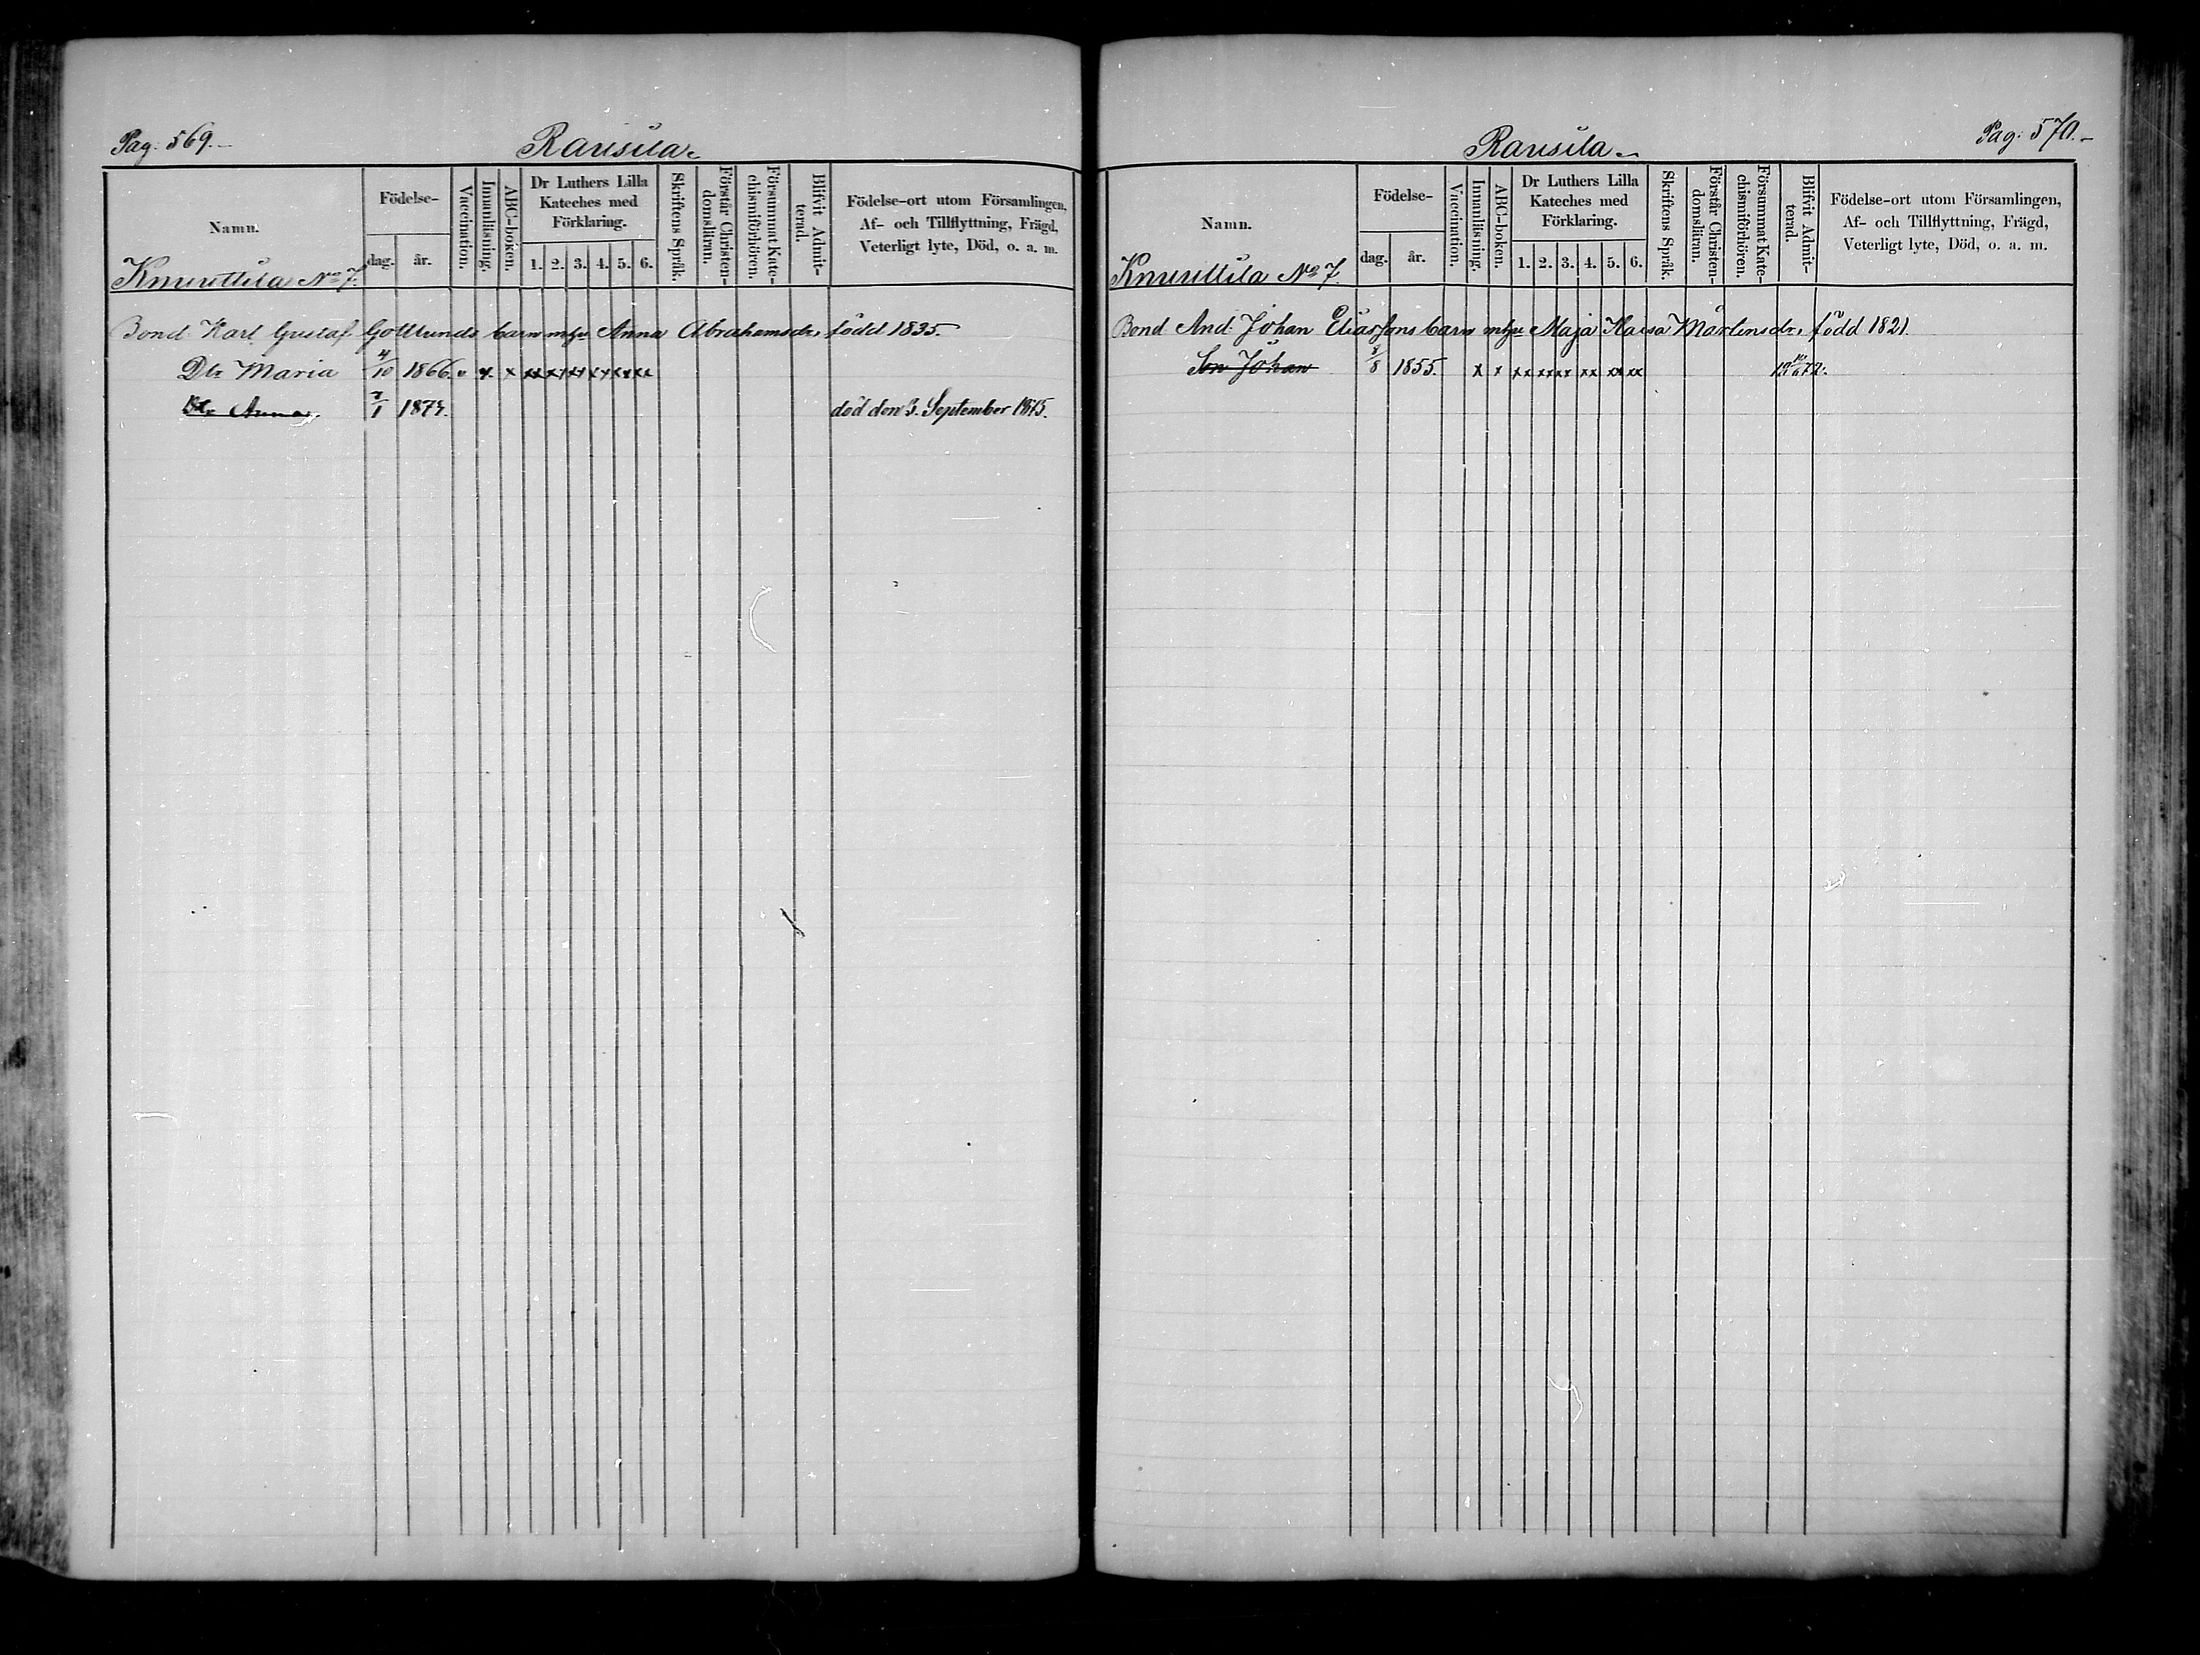 Pag. 569.
Rausila.
Namn.
Födelse-
dag.
år.
Vaccination.
Innanläsning.
ABC-boken.
Dr Luthers Lilla
Kateches med
Förklaring.
1. 2. 3. 4. 5. 6.
Skriftens Språk.
Förstår Christen-
domsläran.
Försummat Kate-
chismiförhören.
Blifvit Admit-
terad.
Födelse-ort utom Församlingen,
Af- och Tillflyttning, Frägd,
Veterligt lyte, Död, o. a. m.
Knuuttila No 7.
Bond. Karl Gustaf Gottlunds barn m. hu Anna Abrahamsdr, född 1835.
Dtr Maria 4/10 1866. x x xx xx xx xx xx xx
Dtr Anna 7/1 1874. död den 3. September 1875.
Pag. 570.
Rausila.
Namn.
Födelse-
dag.
år.
Vaccination.
Innanläsning.
ABC-boken.
Dr Luthers Lilla
Kateches med
Förklaring.
1. 2. 3. 4. 5. 6.
Skriftens Språk.
Förstår Christen-
domsläran.
Försummat Kate-
chismiförhören.
Blifvit Admit-
terad.
Födelse-ort utom Församlingen,
Af- och Tillflyttning, Frägd,
Veterligt lyte, Död, o. a. m.
Knuuttila No 7.
Bond And. Johan Eliassons barn m. hu Maja Kaisa Mårtensdr, född 1821.
Son Johan 8/8 1855. x x xx xx xx xx xx xx